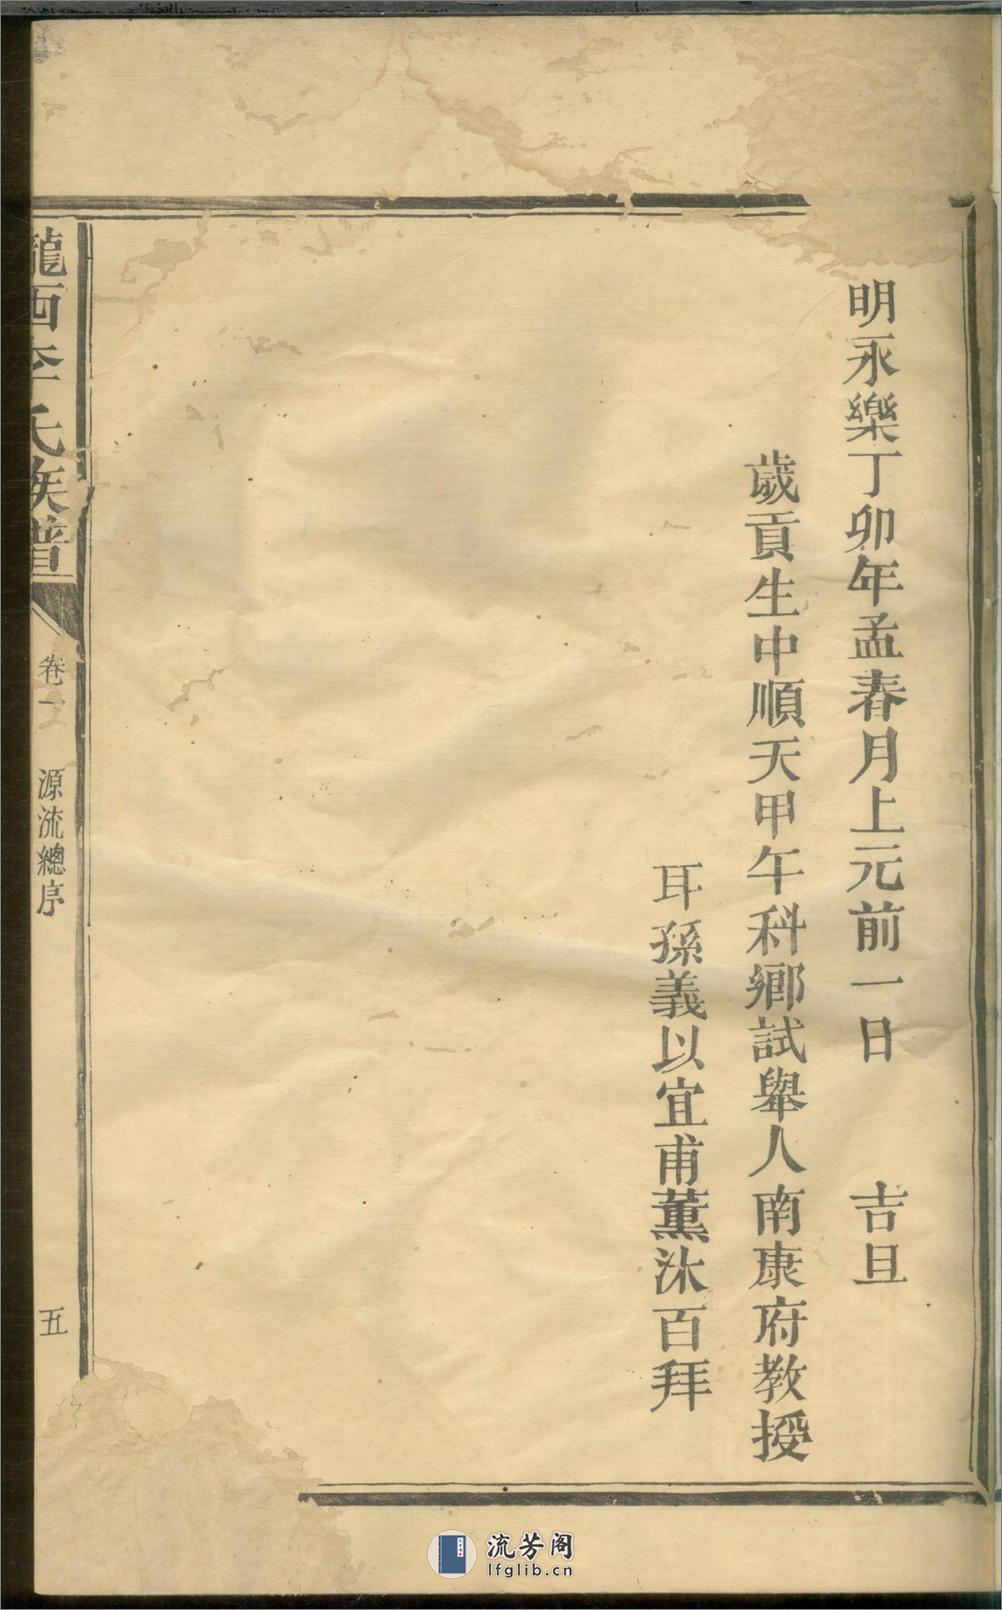 明永樂丁卯年孟春月上元前一日 吉旦
歲貢生中順天甲午科鄉試舉人南康府教授
耳孫義以宜甫薰沐百拜
隴西李氏族譜 卷一 源流總序 五
流芳阁
lfglib.cn